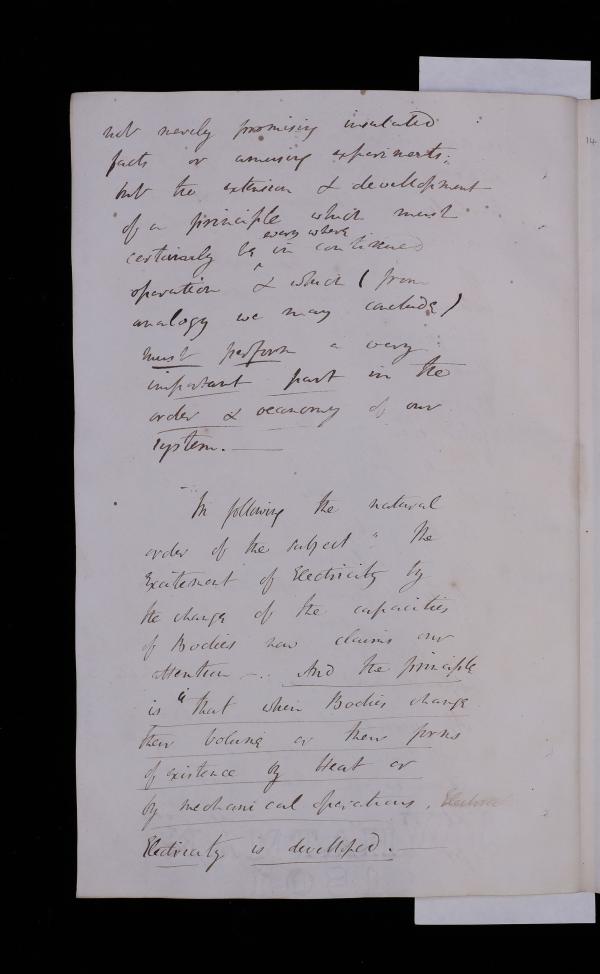 not merely promising insulated
facts or amusing experiments;
but the extension & development
of a principle which must
every where
certainly be in continued
operation & which (from
analogy we may conclude)
must perform a very
important part in the
order & oeconomy of our
system. —
In following the natural
order of the subject " The
Excitement of Electricity by
the change of the capacities
of Bodies now claims our
attention —. And the principle
is "that when Bodies change
their volume or their forms
of existence by Heat or
by mechanical operations. Electrical
Electricity is developed. —
14